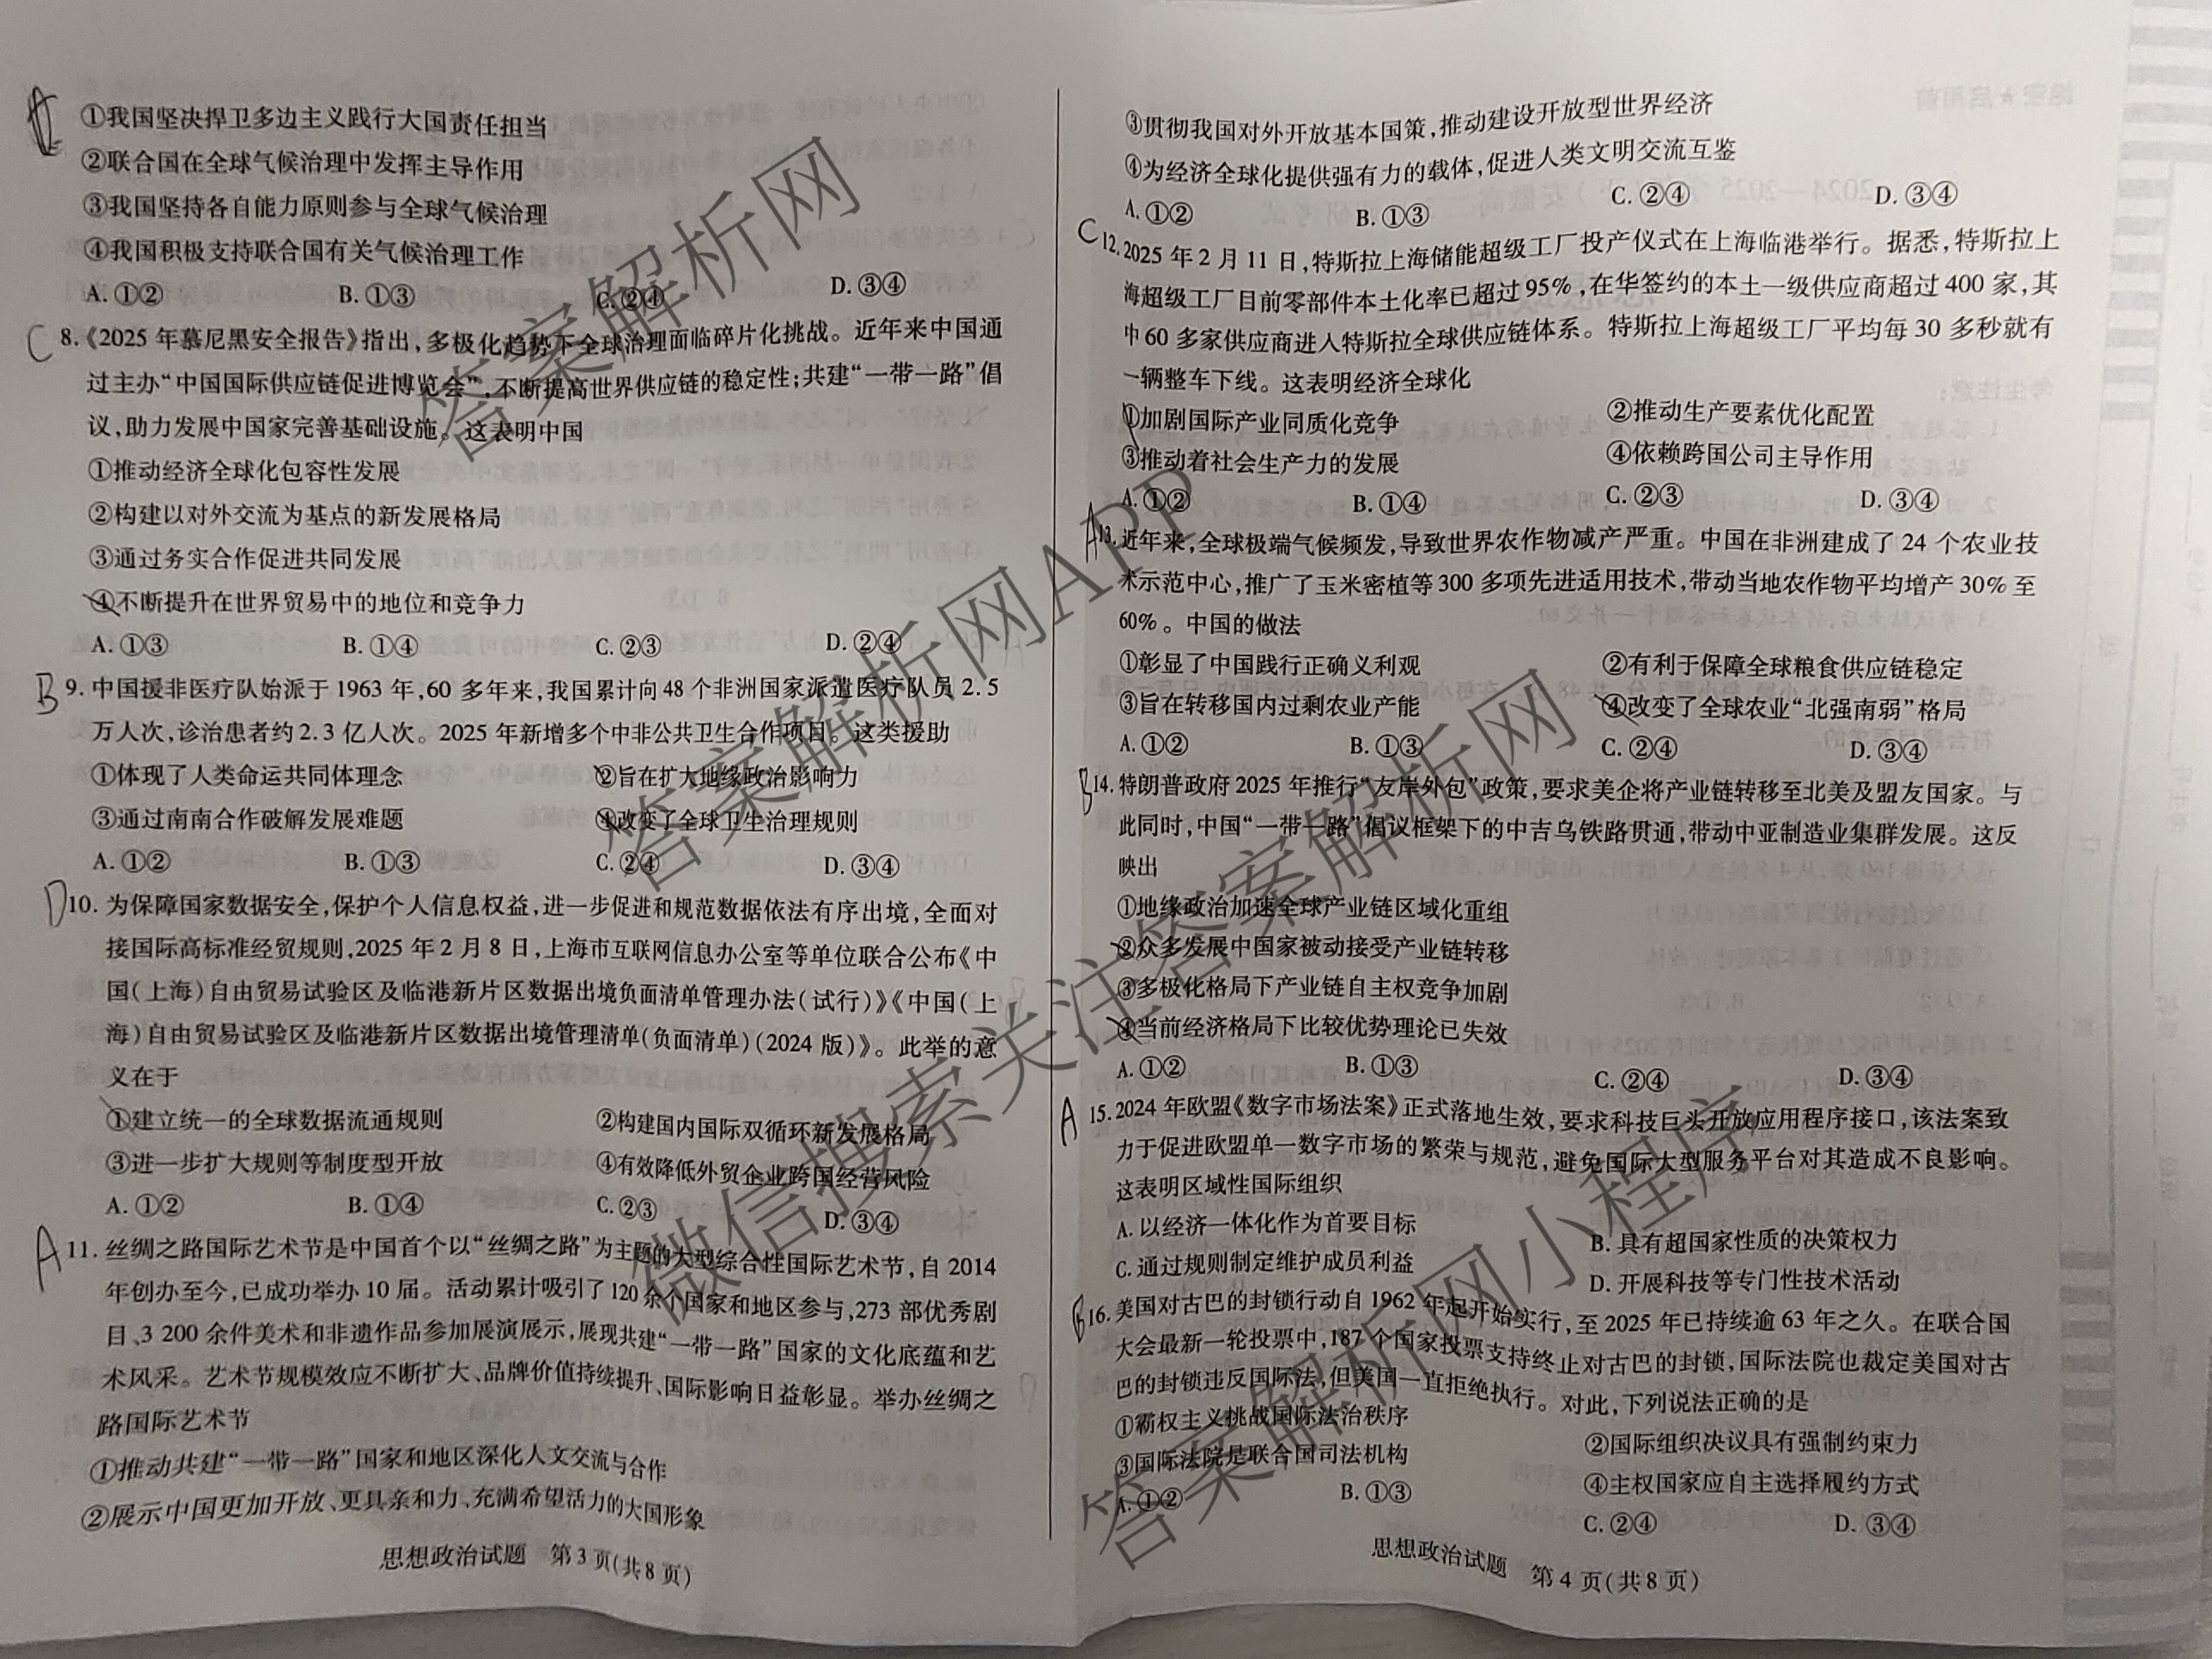 ①我国坚决捍卫多边主义践行大国责任担当
②联合国在全球气候治理中发挥主导作用
③我国坚持各自能力原则参与全球气候治理
④我国积极支持联合国有关气候治理工作
A. ①② B. ①③ C. ②④ D. ③④
C 8.《2025 年慕尼黑安全报告》指出,多极化趋势下全球治理面临碎片化挑战。近年来中国通
过主办“中国国际供应链促进博览会”,不断提高世界供应链的稳定性;共建“一带一路”倡
议,助力发展中国家完善基础设施。这表明中国
①推动经济全球化包容性发展
②构建以对外交流为基点的新发展格局
③通过务实合作促进共同发展
④不断提升在世界贸易中的地位和竞争力
A. ①③ B. ①④ C. ②③ D. ②④
B 9. 中国援非医疗队始派于 1963 年,60 多年来,我国累计向 48 个非洲国家派遣医疗队员 2.5
万人次,诊治患者约 2.3 亿人次。2025 年新增多个中非公共卫生合作项目。这类援助
①体现了人类命运共同体理念 ②旨在扩大地缘政治影响力
③通过南南合作破解发展难题 ④改变了全球卫生治理规则
A. ①② B. ①③ C. ②④ D. ③④
D 10. 为保障国家数据安全,保护个人信息权益,进一步促进和规范数据依法有序出境,全面对
接国际高标准经贸规则,2025 年 2 月 8 日,上海市互联网信息办公室等单位联合公布《中
国(上海)自由贸易试验区及临港新片区数据出境负面清单管理办法(试行)》《中国(上
海)自由贸易试验区及临港新片区数据出境管理清单(负面清单)(2024 版)》。此举的意
义在于
①建立统一的全球数据流通规则 ②构建国内国际双循环新发展格局
③进一步扩大规则等制度型开放 ④有效降低外贸企业跨国经营风险
A. ①② B. ①④ C. ②③ D. ③④
A 11. 丝绸之路国际艺术节是中国首个以“丝绸之路”为主题的大型综合性国际艺术节,自 2014
年创办至今,已成功举办 10 届。活动累计吸引了 120 余个国家和地区参与,273 部优秀剧
目、3 200 余件美术和非遗作品参加展演展示,展现共建“一带一路”国家的文化底蕴和艺
术风采。艺术节规模效应不断扩大、品牌价值持续提升、国际影响日益彰显。举办丝绸之
路国际艺术节
①推动共建“一带一路”国家和地区深化人文交流与合作
②展示中国更加开放、更具亲和力、充满希望活力的大国形象
思想政治试题 第 3 页(共 8 页)
③贯彻我国对外开放基本国策,推动建设开放型世界经济
④为经济全球化提供强有力的载体,促进人类文明交流互鉴
A. ①② B. ①③ C. ②④ D. ③④
C 12. 2025 年 2 月 11 日,特斯拉上海储能超级工厂投产仪式在上海临港举行。据悉,特斯拉上
海超级工厂目前零部件本土化率已超过 95%,在华签约的本土一级供应商超过 400 家,其
中 60 多家供应商进入特斯拉全球供应链体系。特斯拉上海超级工厂平均每 30 多秒就有
一辆整车下线。这表明经济全球化
①加剧国际产业同质化竞争 ②推动生产要素优化配置
③推动着社会生产力的发展 ④依赖跨国公司主导作用
A. ①② B. ①④ C. ②③ D. ③④
A 13. 近年来,全球极端气候频发,导致世界农作物减产严重。中国在非洲建成了 24 个农业技
术示范中心,推广了玉米密植等 300 多项先进适用技术,带动当地农作物平均增产 30% 至
60%。中国的做法
①彰显了中国践行正确义利观 ②有利于保障全球粮食供应链稳定
③旨在转移国内过剩农业产能 ④改变了全球农业“北强南弱”格局
A. ①② B. ①③ C. ②④ D. ③④
B 14. 特朗普政府 2025 年推行“友岸外包”政策,要求美企将产业链转移至北美及盟友国家。与
此同时,中国“一带一路”倡议框架下的中吉乌铁路贯通,带动中亚制造业集群发展。这反
映出
①地缘政治加速全球产业链区域化重组
②众多发展中国家被动接受产业链转移
③多极化格局下产业链自主权竞争加剧
④当前经济格局下比较优势理论已失效
A. ①② B. ①③ C. ②④ D. ③④
A 15. 2024 年欧盟《数字市场法案》正式落地生效,要求科技巨头开放应用程序接口,该法案致
力于促进欧盟单一数字市场的繁荣与规范,避免国际大型服务平台对其造成不良影响。
这表明区域性国际组织
A. 以经济一体化作为首要目标 B. 具有超国家性质的决策权力
C. 通过规则制定维护成员利益 D. 开展科技等专门性技术活动
B 16. 美国对古巴的封锁行动自 1962 年起开始实行,至 2025 年已持续逾 63 年之久。在联合国
大会最新一轮投票中,187 个国家投票支持终止对古巴的封锁,国际法院也裁定美国对古
巴的封锁违反国际法,但美国一直拒绝执行。对此,下列说法正确的是
①霸权主义挑战国际法治秩序 ②国际组织决议具有强制约束力
③国际法院是联合国司法机构 ④主权国家应自主选择履约方式
A. ①② B. ①③ C. ②④ D. ③④
思想政治试题 第 4 页(共 8 页)
答案解析网
答案解析网APP
微信搜索关注答案解析网
答案解析网小程序